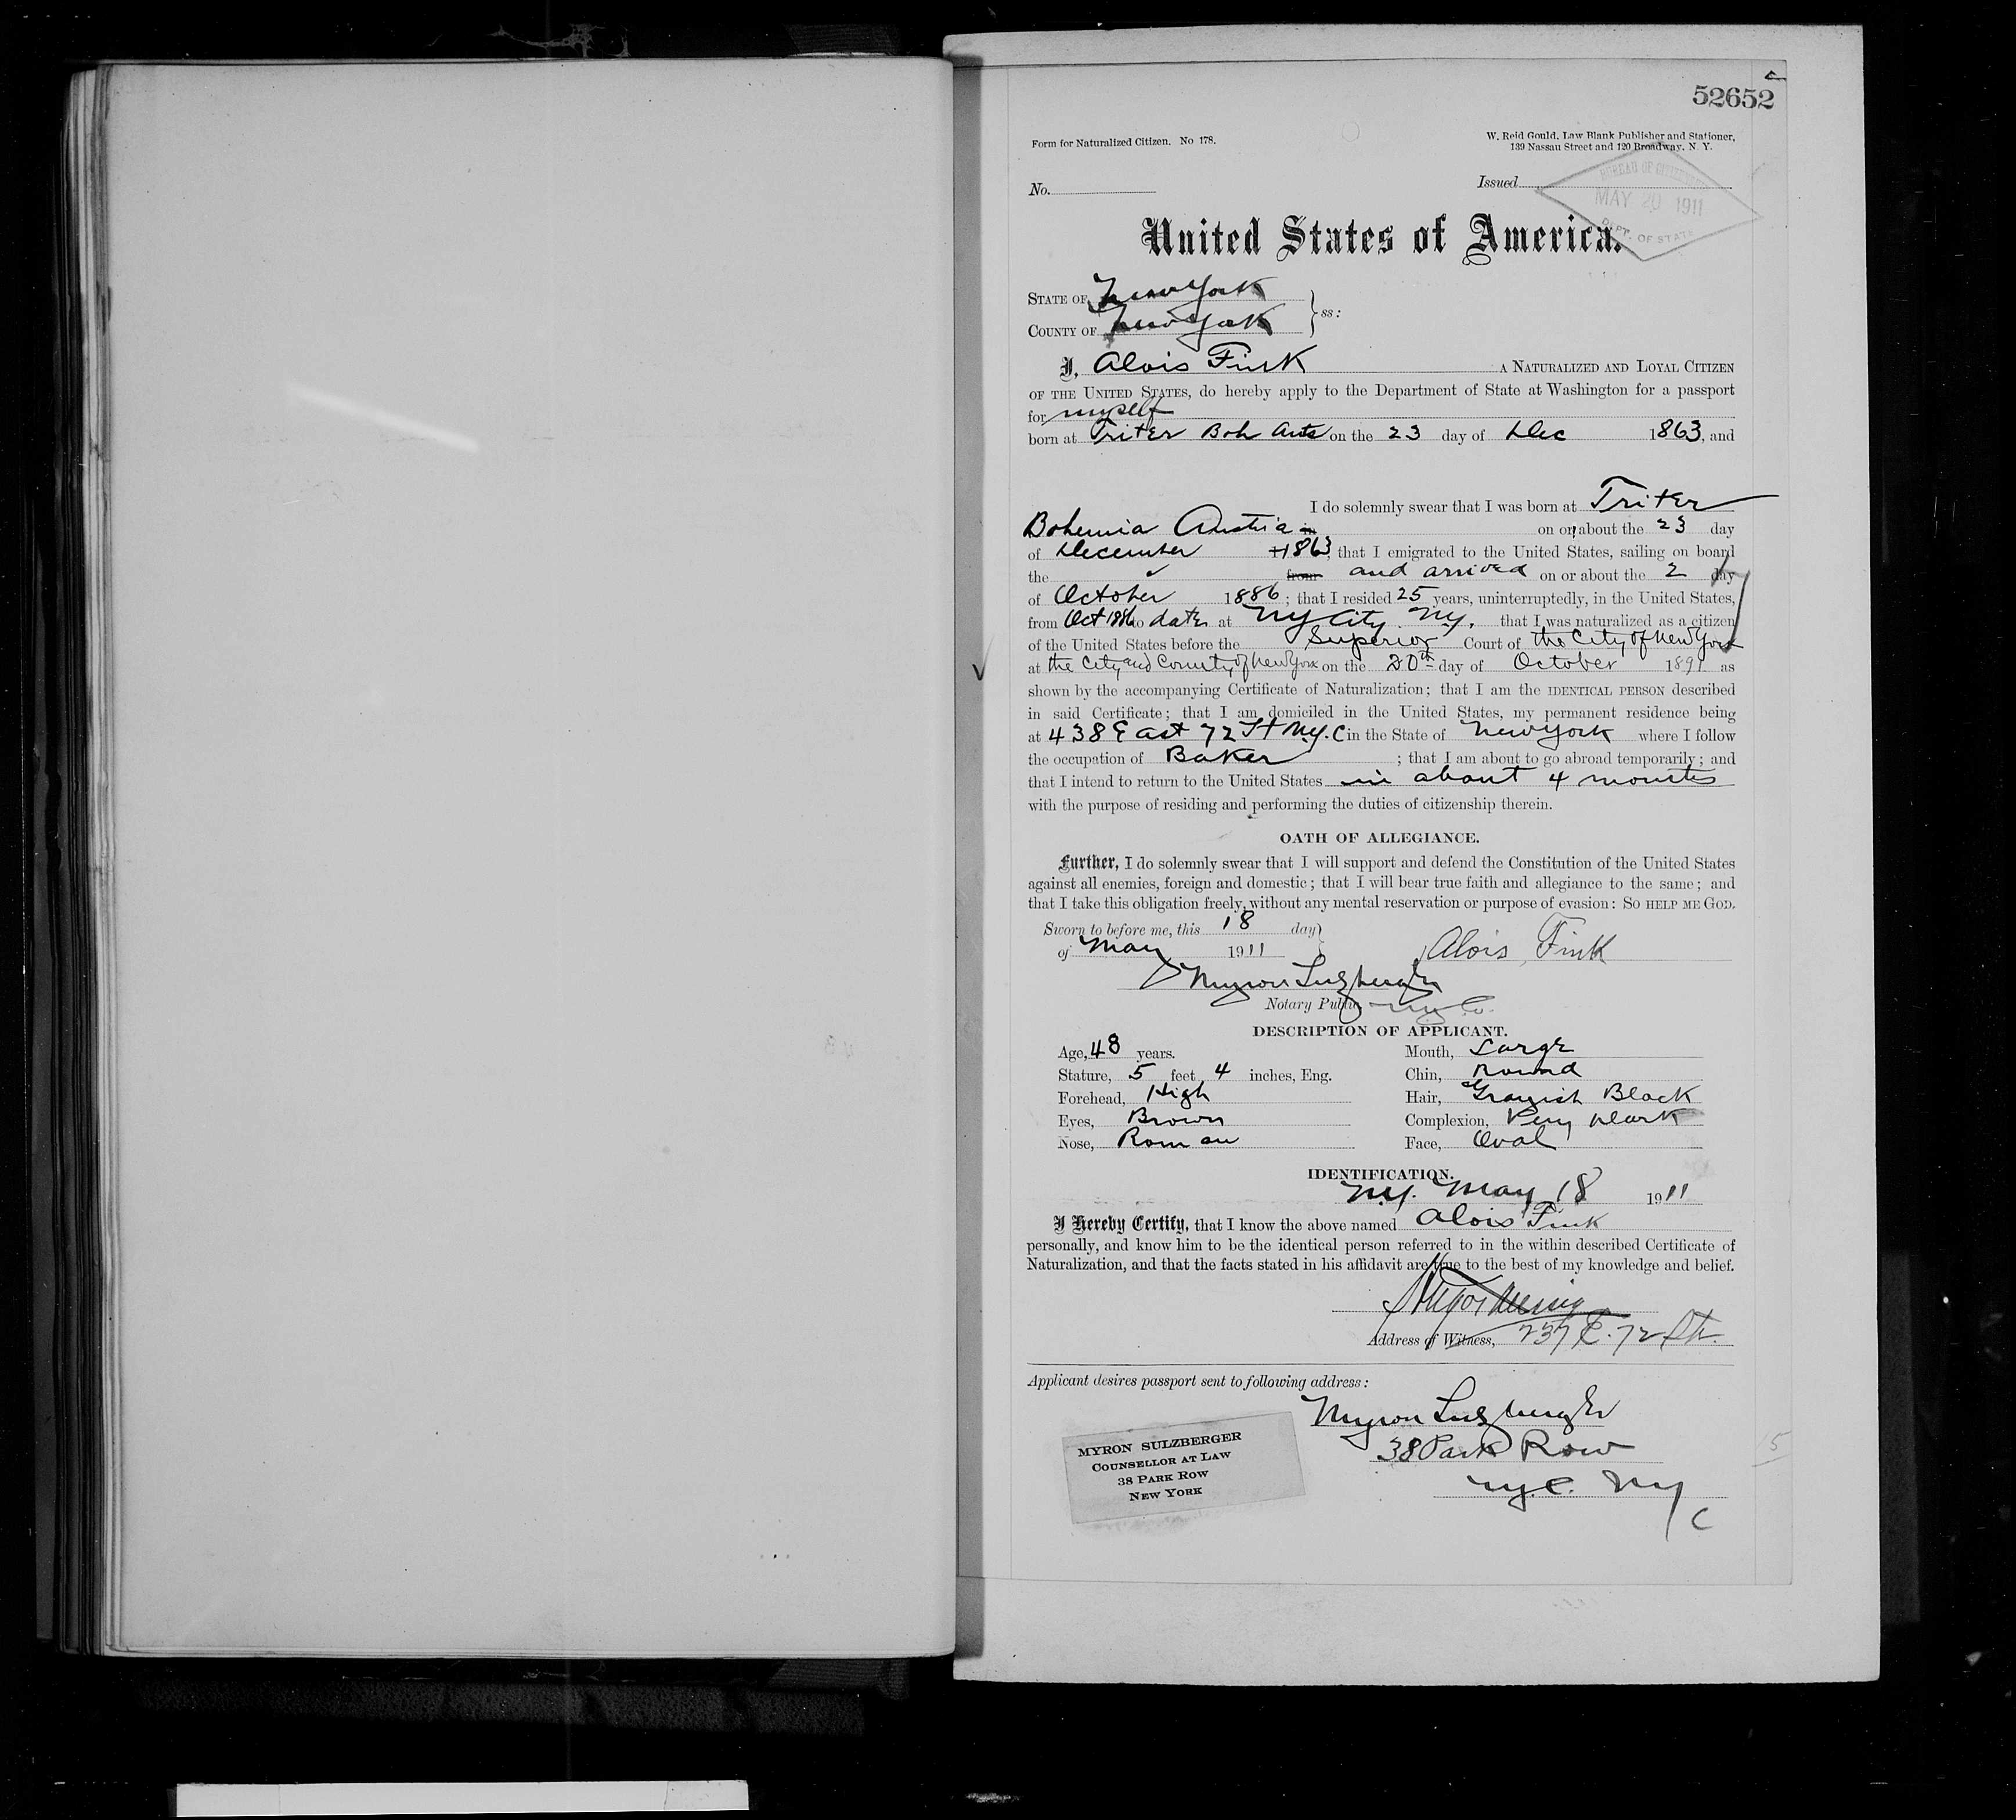 52652
Form for Naturalized Citizen. No 178.
W. Reid Gould, Law Blank Publisher and Stationer,
139 Nassau Street and 120 Broadway, N. Y.
No.
Issued
BUREAU OF CITIZENSHIP
MAY 20 1911
DEPT. OF STATE
United States of America.
STATE OF New York
COUNTY OF New York
ss:
I, Alois Fink A NATURALIZED AND LOYAL CITIZEN
OF THE UNITED STATES, do hereby apply to the Department of State at Washington for a passport
for myself
born at Triter Boh Aus on the 23 day of Dec 1863, and
I do solemnly swear that I was born at Triter
Bohemia Austria in on or about the 23 day
of December 1863, that I emigrated to the United States, sailing on board
the from and arrived on or about the 2 day
of October 1886; that I resided 25 years, uninterruptedly, in the United States,
from Oct 1886 to date at NY City N.Y. that I was naturalized as a citizen
of the United States before the Superior Court of the City of New York
at the City and County of New York on the 20th day of October 1891 as
shown by the accompanying Certificate of Naturalization; that I am the IDENTICAL PERSON described
in said Certificate; that I am domiciled in the United States, my permanent residence being
at 438 East 72 St N.Y.C in the State of New York where I follow
the occupation of Baker ; that I am about to go abroad temporarily; and
that I intend to return to the United States in about 4 months
with the purpose of residing and performing the duties of citizenship therein.
OATH OF ALLEGIANCE.
Further, I do solemnly swear that I will support and defend the Constitution of the United States
against all enemies, foreign and domestic; that I will bear true faith and allegiance to the same; and
that I take this obligation freely, without any mental reservation or purpose of evasion: SO HELP ME GOD.
Sworn to before me, this 18 day
of May 1911
Alois Fink
Myron Sulzberger
Notary Public N.Y. Co.
DESCRIPTION OF APPLICANT.
Age, 48 years. Mouth, Large
Stature, 5 feet 4 inches, Eng. Chin, Round
Forehead, High Hair, Grayish Black
Eyes, Brown Complexion, Very Dark
Nose, Roman Face, Oval
IDENTIFICATION.
N.Y. May 18 1911
I Hereby Certify, that I know the above named Alois Fink
personally, and know him to be the identical person referred to in the within described Certificate of
Naturalization, and that the facts stated in his affidavit are true to the best of my knowledge and belief.
Address of Witness, 237 E. 72 Str.
Applicant desires passport sent to following address:
Myron Sulzberger
38 Park Row
N.Y.C. NY
C
MYRON SULZBERGER
COUNSELLOR AT LAW
38 PARK ROW
NEW YORK
5